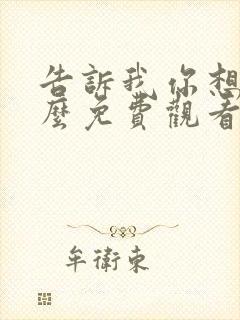 告訴我你想
麼免費觀看
牟衛東